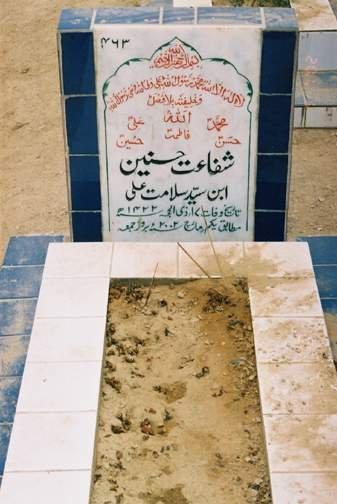 ۱۴۶۳
الله
بسم الله الرحمن الرحیم
لا الہ الا اللہ محمد رسول اللہ علی ولی اللہ وصی رسول اللہ
وخلیفتہ بلا فصل
محمدؐ اللہ علیؑ
حسنؑ فاطمہؑ حسینؑ
شفاعت حسنین
ابن سید سلامت علی
تاریخ وفات ۱۷ ذی الحجہ ۱۴۲۲ھ
مطابق یکم مارچ ۲۰۰۲ء بروز جمعہ